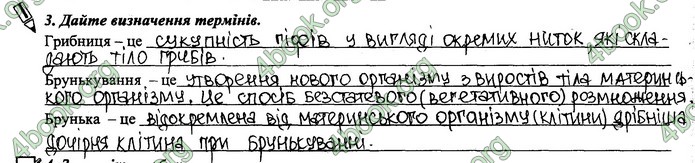 3. Дайте визначення термінів.
Грибниця – це сукупність гіфів у вигляді окремих ниток, які скла-
дають тіло грибів.
Брунькування – це утворення нового організму з виростів тіла материнсь-
кого організму. Це спосіб безстатевого (вегетативного) розмноження.
Брунька – це відокремлена від материнського організму (клітини) дрібніша
дочірня клітина при брунькуванні.